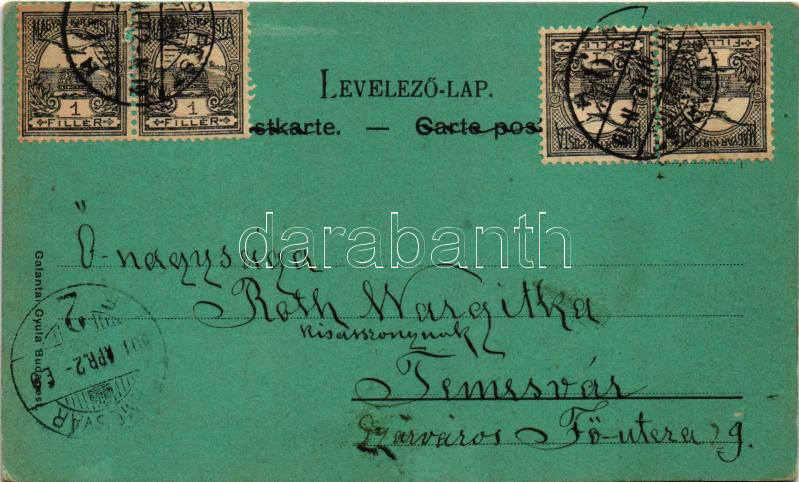 MAGYAR KIR. POSTA
1
FILLÉR
MAGYAR KIR. POSTA
1
FILLÉR
MAGYAR KIR. POSTA
FILLÉR
MAGYAR KIR. POSTA
FILLÉR
LEVELEZŐ-LAP.
stkarte. — Carte pos
Ő-nagysága
Roth Margitka
kisasszonynak
Temesvár
Gyárváros Fő-utcza 9.
Galantai Gyula Budapest
APR. 2
darabanth